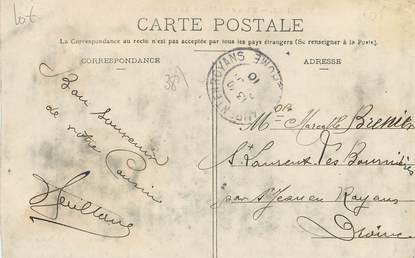 Lot
CARTE POSTALE
La Correspondance au recto n'est pas acceptée par tous les pays étrangers (Se renseigner à la Poste).
CORRESPONDANCE
ADRESSE
Bon souvenir
de votre Cousin
M^elle Marcelle Brenier
St Laurent les
par St Jean en Royans
Drôme